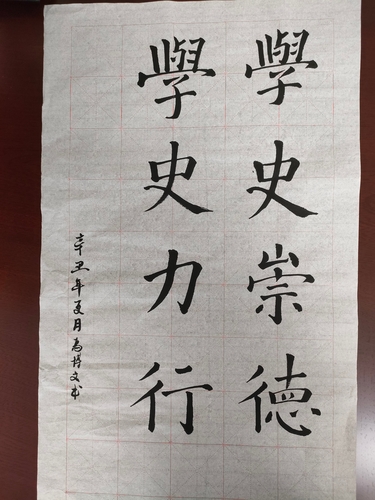 學史崇德
學史力行
辛丑年夏月文书